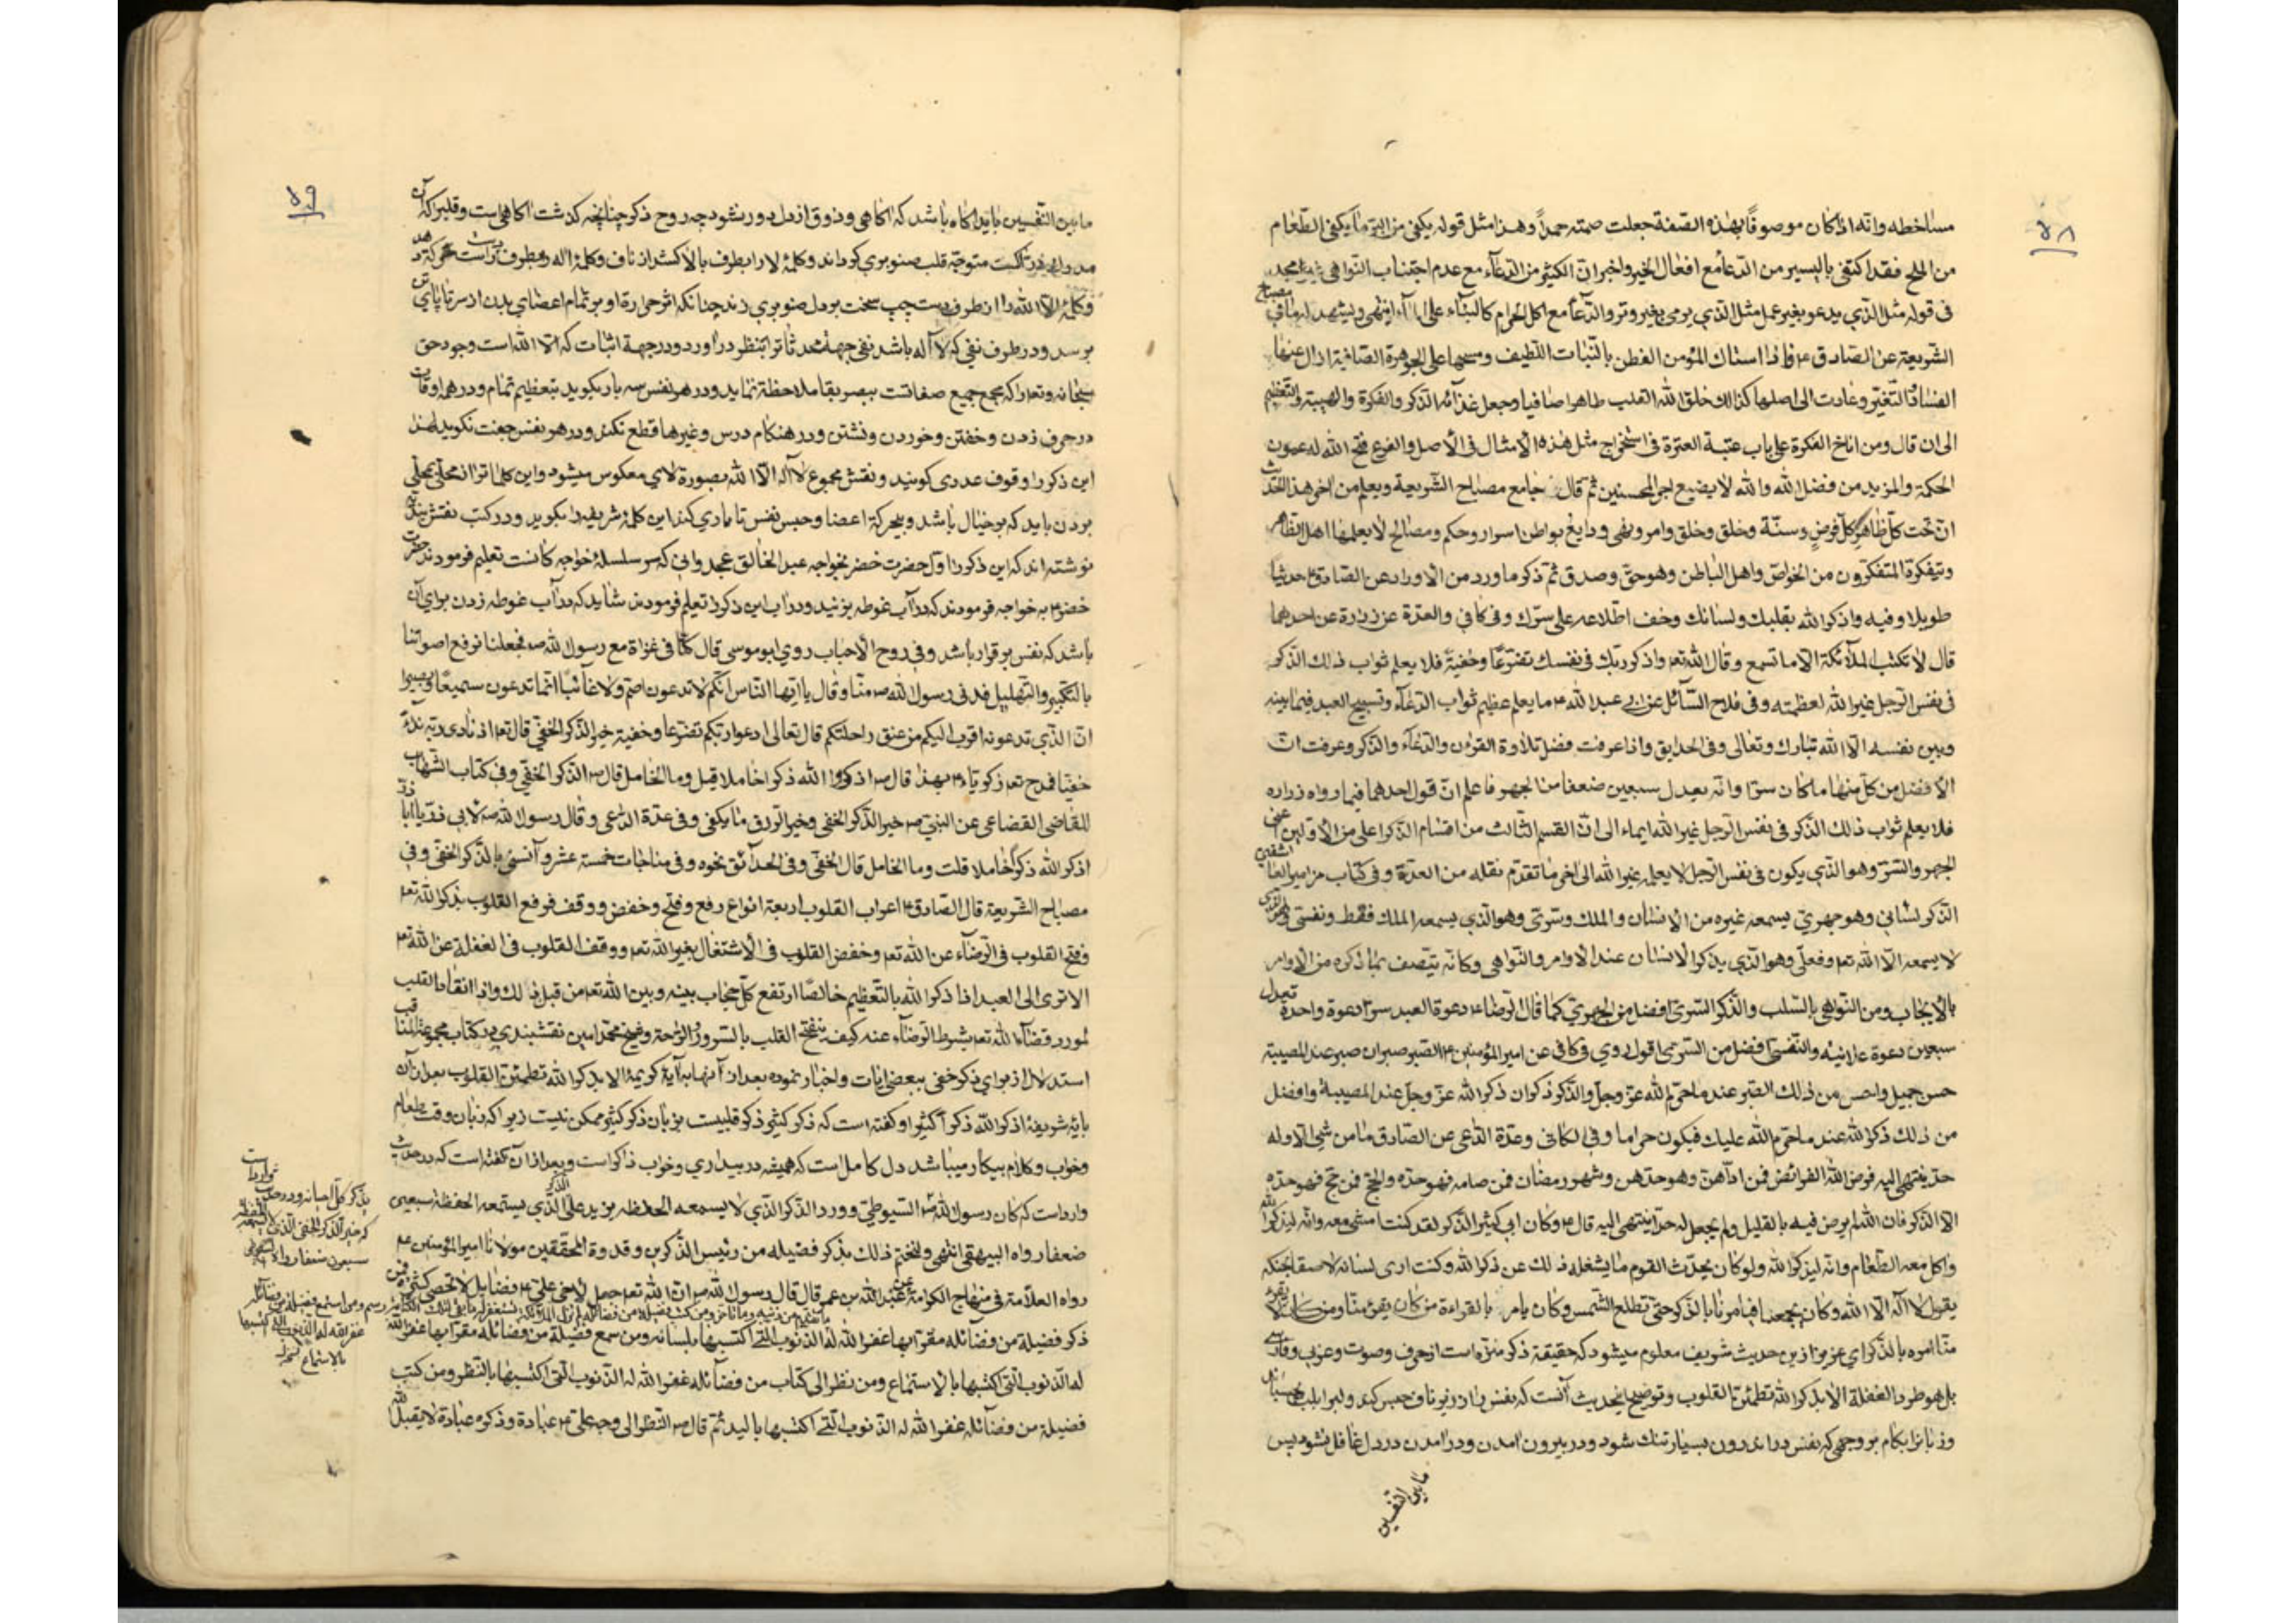 ٥٨
مساخطه وانه اذا كان موصوفًا بهذه الصفة جعلت صمته حمداً وهذا مثل قوله يكفى من البرّ ما يكفى الطعام
من الملح فقد اكتفى باليسير من الدعاء مع افعال الخير واخبر انّ الكثير من الدعاء مع عدم اجتناب النواهى غير مجد
فى قوله مثل الذي يدعو بغير عمل مثل الذي يرمى بغير وتر والدعاء مع اكل الحرام كالبناء على الماء انتهى ويشهد له ما فى مصباح
الشريعة عن الصادق ع فاذا استاك المؤمن الفطن بالنبات اللطيف ومسحها على الجوهرة الصافية ازال عنها
الفساد والتغيّر وعادت الى اصلها كذلك خلق الله القلب طاهرا صافيا وجعل غذائه الذكر والفكرة والهيبة والتعظيم
الى ان قال ومن اناخ الفكرة على باب عتبة العبرة فى استخراج مثل هذه الأمثال فى الأصل والفرع فتح الله له عيون
الحكمة والمزيد من فضل الله والله لا يضيع اجر المحسنين ثم قال جامع مصباح الشريعة ويعلم من اخر هذا الحديث
انّ تحت كلّ ظاهر كلّ فرض وسنّة وخلق وخلق وامر ونهى ودايع بواطن اسرار وحكم ومصالح لا يعلمها اهل الظاهر
ويتفكره المتفكرون من الخواصّ واهل الباطن وهو حق وصدق ثم ذكر ما ورد من الاوراد عن الصادق ع حديثا
طويلا وفيه واذكر الله بقلبك ولسانك وخف اطلاعه على سرّك وفى كافي والعدّة عن زرارة عن احدهما
قال لا تكتب الملآئكة الا ما تسمع وقال الله تعه واذكر ربّك فى نفسك تضرّعًا وخفية فلا يعلم ثواب ذلك الذكر
فى نفس الرجل غير الله لعظمته وفى فلاح السآئل عن ابى عبد الله ع ما يعلم عظيم ثواب الدعآء وتسبيح العبد فيما بينه
وبين نفسه الا الله تبارك وتعالى وفى الحدايق واذا عرفت فضل تلاوة القرءان والدعآء والذكر وعرفت انّ
الأفضل من كلّ منها ما كان سرّا وانّه يعدل سبعين ضعفا من الجهر فاعلم انّ قول احدهما فيما رواه زراره
فلا يعلم ثواب ذلك الذكر فى نفس الرجل غير الله ايماء الى انّ القسم الثالث من اقسام الذكر اعلى من الأوّلين اعنى
الجهر والسّر وهو الذي يكون فى نفس الرجل لا يعلمه غير الله الى اخر ما تقدم نقله من العدّة وفى كتاب مزامير العاشقين
الذكر لسانى وهو جهريّ يسمعه غيره من الانسان والملك وسرّى وهو الذي يسمعه الملك فقط ونفسى
لا يسمعه الا الله تعه وفعلى وهو الذي يذكر الانسان عند الأوامر والنواهى وكانّه يتصف بما ذكره من الأوامر
بالأيجاب ومن النواهى بالسلب والذكر السرّى افضل من الجهريّ كما قال الرضا ع دعوة العبد سرّا دعوة واحدة تعدل
سبعين دعوة علانية والنفسىّ افضل من السرّى اقول روي فى كافى عن امير المؤمنين ع الصبر صبران صبر عند المصيبة
حسن جميل واحسن من ذلك الصبر عند ما حرّم الله عزّ وجلّ والذكر ذكران ذكر الله عزّ وجلّ عند المصيبة وافضل
من ذلك ذكر الله عند ما حرّم الله عليك فيكون حراما وفى الكافى وعدّة الداعى عن الصادق ما من شئ الا وله
حدّ ينتهى اليه فرض الله الفرائض فمن ادّاهنّ وهو حدّهن وشهر رمضان فمن صامه فهو حدّه والحج فمن حجّ فهو حدّه
الا الذكر فانّ الله لم يرض فيه بالقليل ولم يجعل له حدّا ينتهى اليه قال ع وكان ابى كثير الذكر لقد كنت امشى معه وانّه ليذكر الله
واكل معه الطعام وانّه ليذكر الله ولو كان يحدّث القوم ما يشغله ذلك عن ذكر الله وكنت ارى لسانه لاصقا بحنكه
يقول لا اله الا الله وكان يجمعنا فيامرنا بالذكر حتّى تطلع الشّمس وكان يامر بالقراءة من كان يقرء منّا ومن كان لا يقرء
منّا امره بالذكر اي عزيز از ين حديث شريف معلوم ميشود كه حقيقة ذكر منزّه است از حرف وصوت وعربى وفارسى
بل هو طرد الغفلة الا بذكر الله تطمئنّ القلوب وتوضيح اين حديث آنست كه نفس را در زير ناف حبس كند ولب را بلب چسباند
وزبانرا بكام بر وجهى كه نفس در اندرون بسيار تنك نشود ودر بيرون امدن ودرامدن در دل غافل نشود پس
ما بين النفسين
٥٩
ما بين النفسين بايد اكاه باشد كه اكاهى وذوق از دل دور نشود چه روح ذكر چنانچه كذشت اكاهى است وقلب را كه آن
متوجّه قلب صنوبري كرداند وكلمۀ لا را بطرف بالا كشد از ناف وكلمۀ اله را بطرف دست راست حركت دهد
وكلمۀ الا الله را از طرف دست چپ سخت بر دل صنوبري زند چنانكه اثر حرارة او بر تمام اعضاي بدن از سر تا پاى تن
برسد ودر طرف نفى كه لا اله باشد نفى جهة محدثات را بنظر در آورد ودر جهة اثبات كه الا الله است وجود حق
سبحانه وتعه را كه مجمع جميع صفاتست ببصر بقا ملاحظه نمايد ودر هر نفس سه بار بكويد بتعظيم تمام ودر همه اوقات
در حرف زدن وخفتن وخوردن ونشتن ودر هنكام درس وغيرها قطع نكند ودر هر نفس جفت نكويد لهذا
اين ذكر را وقوف عددى كويند ونقش مجموع لا اله الا الله بصورة لاي معكوس ميشود واين كلمات را از محلّى بمحلّى
بردن بايد كه بر خيال باشد وبى حركة اعضا وحبس نفس تا يارى كند اين كلمۀ شريفه را بكويد ودر كتب نقشبنديّه
نوشته اند كه اين ذكر را اوّل حضرت خضر بخواجه عبد الخالق عجدوانى كه سر سلسلۀ خواجه كانست تعليم فرمودند حضرت
خضر ع به خواجه فرمودند كه در آب غوطه بزنيد ودر آب اين ذكر را تعليم فرمودند شايد كه در آب غوطه زدن براى آن
باشد كه نفس بر قرار باشد وفى روح الأحباب روي ابو موسى قال كنّا فى غزاة مع رسول الله ص فجعلنا نرفع اصواتنا
بالتكبير والتهليل فدنى رسول الله ص منّا وقال يا ايّها النّاس انّكم لا تدعون اصمّ ولا غائبًا انّما تدعون سميعًا وبصيرا
انّ الذي تدعونه اقرب اليكم من عنق راحلتكم قال تعالى ادعوا ربّكم تضرّعا وخفية خير الذكر الخفى قال تعه اذ نادى ربّه ندآءً
خفيّا فمدح تعه زكريّا ع بهذا قال ص اذكروا الله ذكرا خاملا قيل وما الخامل قال ص الذكر الخفى وفى كتاب الشهاب
للقاضى القضاعى عن النبىّ ص خير الذكر الخفى وخير الرزق ما يكفى وفى عدّة الداعى وقال رسول الله ص لابى ذرّ يا ابا ذرّ
اذكر الله ذكرًا خاملا قلت وما الخامل قال الخفىّ وفى الحدآئق نحوه وفى مناجات خمسة عشر وآنسنى بالذكر الخفىّ وفى
مصباح الشريعة قال الصادق ع اعراب القلوب اربعة انواع رفع وفتح وخفض ووقف فرفع القلوب بذكر الله تعه
وفتح القلوب فى الرضآء عن الله تعه وخفض القلوب فى الأشتغال بغير الله تعه ووقف القلوب فى الغفلة عن الله تعه
الا ترى الى العبد اذا ذكر الله بالتّعظيم خالصًا ارتفع كلّ حجاب بينه وبين الله تعه من قبل ذلك واذا انقاد القلب
لمورد قضآء الله تعه بشرط الرضآء عنه كيف ينفتح القلب بالسرور والرّاحة وشيخ محمّد امين نقشبندي در كتاب مجموعة المناقب
استدلال از براي ذكر خفى ببعضى ايات واخبار نموده بعد از آنها به آيۀ كريمۀ الا بذكر الله تطمئنّ القلوب بعد از آن
بايۀ شريفۀ اذكر الله ذكرا كثيرا وكفته است كه ذكر كثير ذكر قلبيست بزبان ذكر كثير ممكن نيست زيرا كه زبان وقت طعام
وخواب وكلام بيكار ميباشد دل كامل است كه هميشه در بيداري وخواب ذاكر است وبعد از آن كفته است كه در حديث
وارد است كه كان رسول الله ص السّيوطىّ وورد الذكر الذي لا يسمعه الحفظه يزيد على الذكر الذّي يستمعه الحفظة سبعين
ضعفا رواه البيهقى انتهى ولنختم ذلك بذكر فضيله من رئيس الذّاكرين وقدوة المحقّقين مولانا امير المؤمنين ع
رواه العلّامة فى منهاج الكرامة عن عبد الله بن عمر قال قال رسول الله ص انّ الله تعه جعل لأخى علىّ ع فضايل لا تحصى كثرة فمن
ذكر فضيلة من فضائله مقرّا بها غفر الله له الذنوب التى اكتسبها بلسانه ومن سمع فضيلة من فضائله مقرّا بها غفر الله
له الذنوب الّتى اكتسبها بالاستماع ومن نظر الى كتاب من فضآئله غفر الله له الذنوب الّتى اكتسبها بالنّظر ومن كتب
فضيلة من فضآئله غفر الله له الذنوب الّتى اكتسبها باليد ثمّ قال ص النّظر الى وجه علىّ ع عبادة وذكره عبادة لا يقبل الله